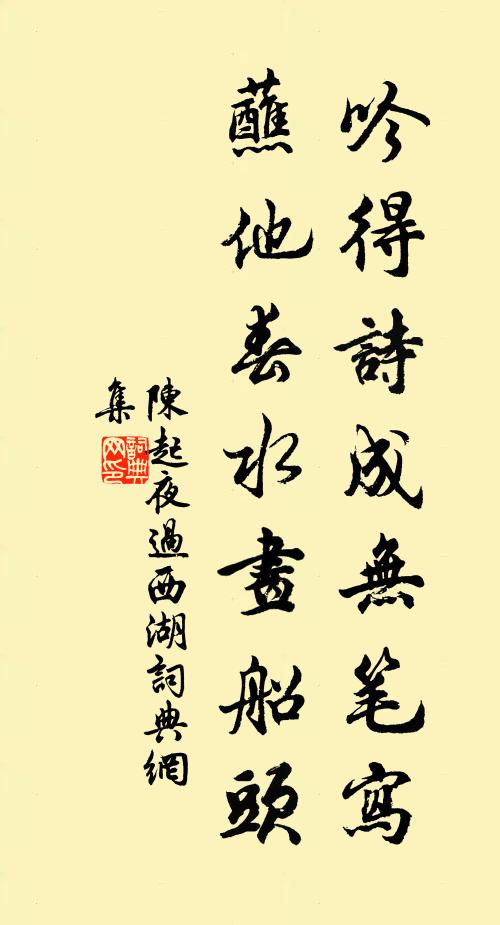 吟得詩成無笔寫
蘸他春水畫船頭
陳起夜過西湖詞典網
集
詞典网印